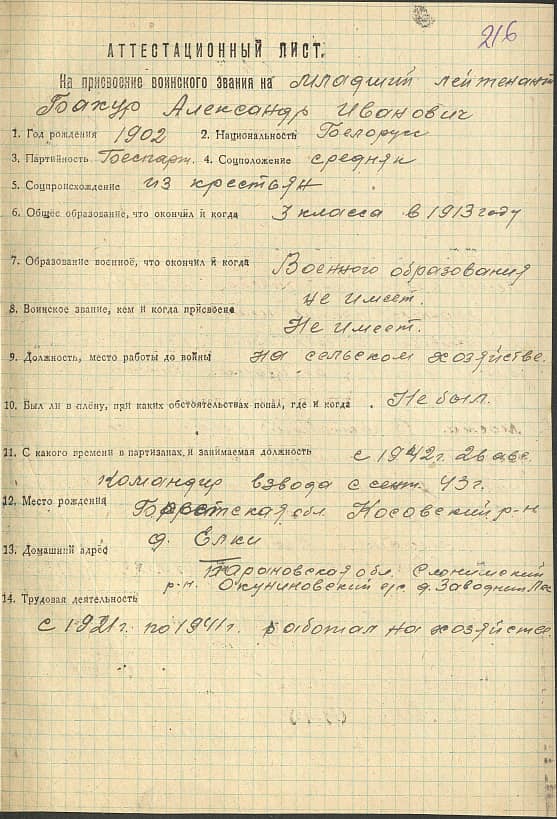 216
АТТЕСТАЦИОННЫЙ ЛИСТ.
На присвоение воинского звания на младший лейтенант
Бахур Александр Иванович
1. Год рождения 1902 2. Национальность Белорусс
3. Партийность Беспарт. 4. Соцположение средняк
5. Соцпроисхождение из крестьян
6. Общее образование, что окончил и когда 3 класса в 1913 году
7. Образование военное, что окончил и когда Военного образования
не имеет.
8. Воинское звание, кем и когда присвоено
Не имеет.
9. Должность, место работы до войны на сельском хозяйстве.
10. Был ли в плену, при каких обстоятельствах попал, где и когда Не был.
11. С какого времени в партизанах, и занимаемая должность с 1942 г. 26 авг.
Командир взвода с сент. 43 г.
12. Место рождения Брестская обл. Косовский р-н
д. Елки
13. Домашний адрес
Барановская обл. Слонимский
р-н. Окуниновский с/с д.
14. Трудовая деятельность
с 1921 г. по 1941 г. работал на хозяйстве